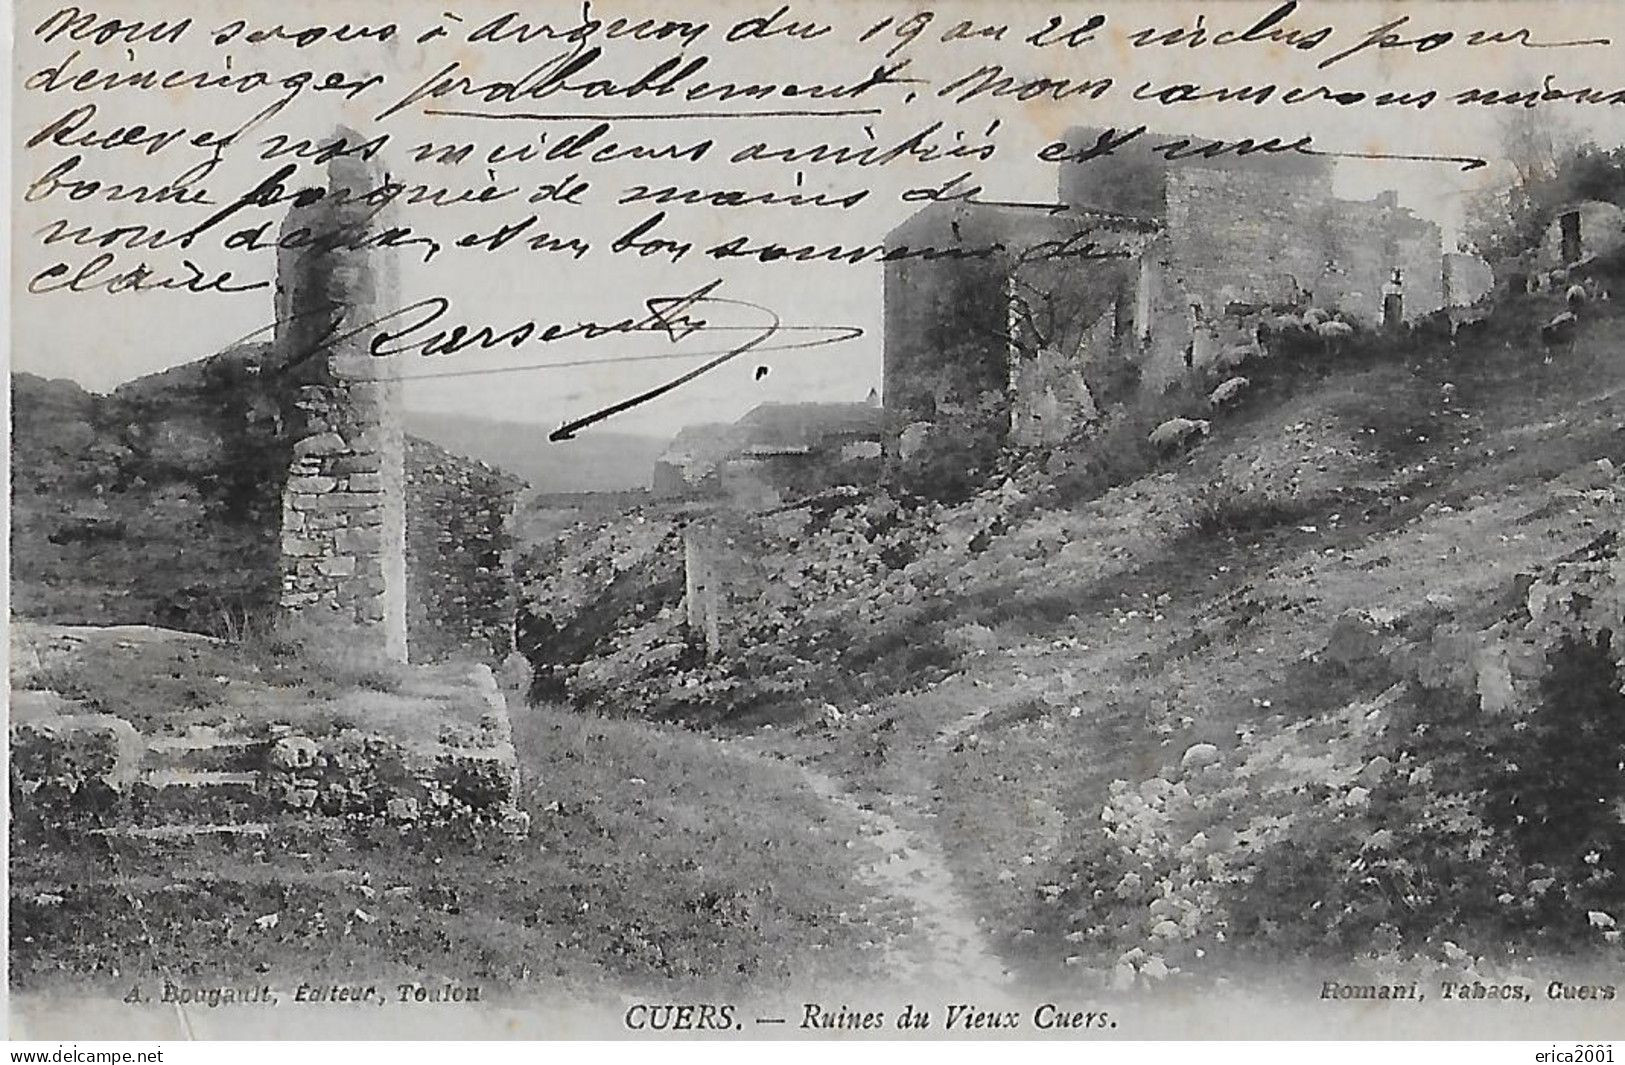 Nous serons à Avignon du 19 au 22 inclus pour
déménager probablement. Nous causerons mieux
Recevez nos meilleurs amitiés et une
bonne poignée de mains de
nous deux, et un bon souvenir de
Claire
A. Bougault, Éditeur, Toulon
Romani, Tabacs, Cuers
CUERS. — Ruines du Vieux Cuers.
delcampe.net
erica2001